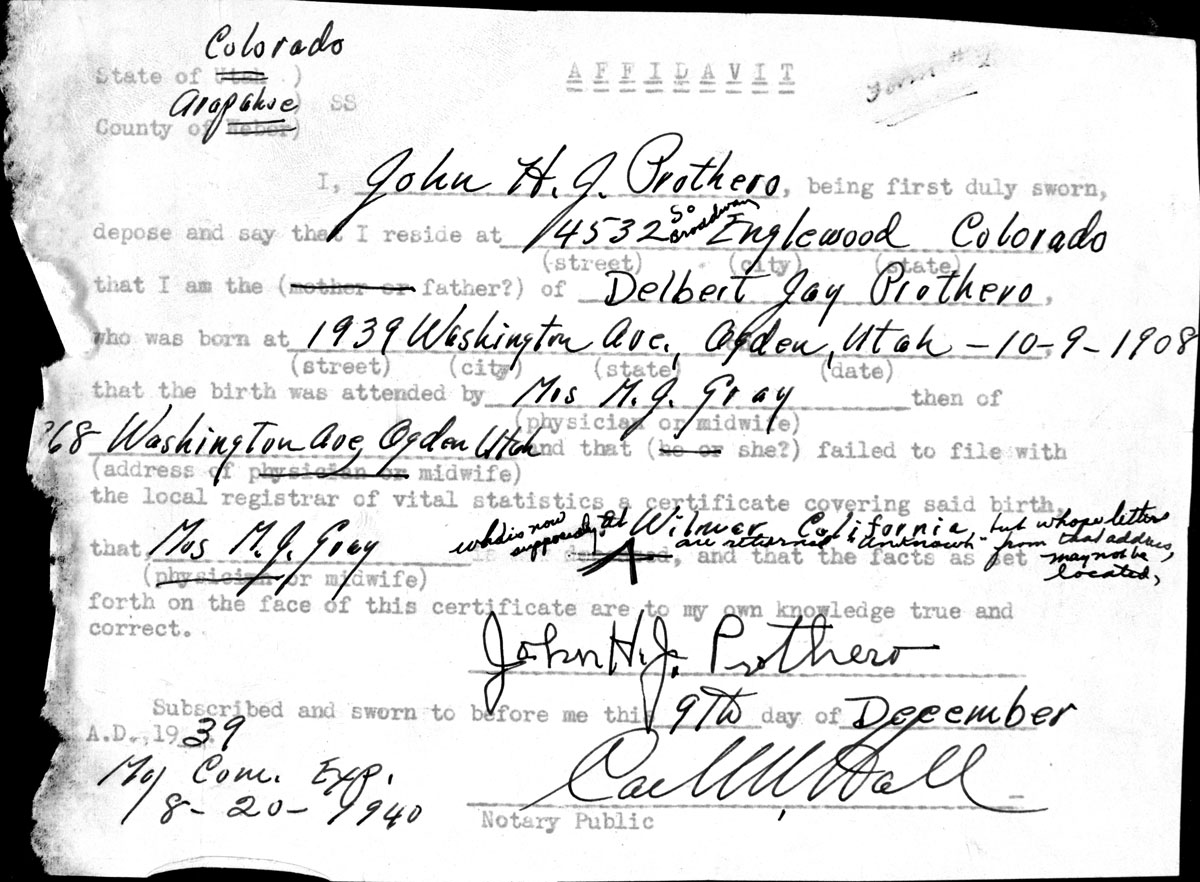 Colorado
State of Utah )
Arapahoe ) SS
County of Weber)
AFFIDAVIT
Form # 2
I, John H. J. Prothero, being first duly sworn,
depose and say that I reside at 4532 So Broadway Englewood Colorado
(street) (city) (state)
that I am the (mother or father?) of Delbert Jay Prothero,
who was born at 1939 Washington Ave., Ogden, Utah - 10-9-1908
(street) (city) (state) (date)
that the birth was attended by Mrs M. J. Gray then of
(physician or midwife)
68 Washington Ave, Ogden Utah and that (he or she?) failed to file with
(address of physician or midwife)
the local registrar of vital statistics a certificate covering said birth,
that Mrs M. J. Gray who is now supposedly at Wilmar, California, but whose letters are returned "unknown" from that address, may not be located,
is now deceased, and that the facts as set
(physician or midwife)
forth on the face of this certificate are to my own knowledge true and
correct.
John H. J. Prothero
Subscribed and sworn to before me this 9th day of December
A.D., 1939
My Com. Exp.
8-20-1940
Hall
Notary Public